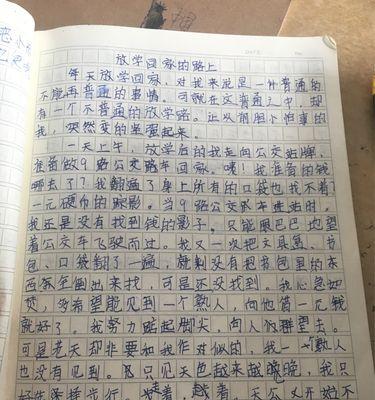 放学回家的路上
每天放学回家，对我来说是一件普通的
不能再普通的事情。可就在这普通之中，却
有一个不普通的放学路。让从前胆小怕事的
我，突然变的坚强起来。
一天上午，放学后的我走向公交站牌，
准备做9路公交路车回家。噢！我准备的钱
哪去了？我翻遍了身上所有的口袋也找不着
一元硬币的踪影。当9路公交车进站时，
我还是没有找到钱的影子。只能眼巴巴地望
着公交车飞驶而过。我又一次把文具盒、书
包、口袋翻了一遍，就剩没有把书包里的东
西一倒出来找，可是还没找到。我心急如
焚，多希望能见到一个熟人，向他借一元钱
就好了。我努力踮起脚尖，向人群望去。
可是老天却非要和我作对似的，我一个熟人
也没有见到。只见天色越来越晚，我只
好先选择步行。走着，走着，天公又开始不